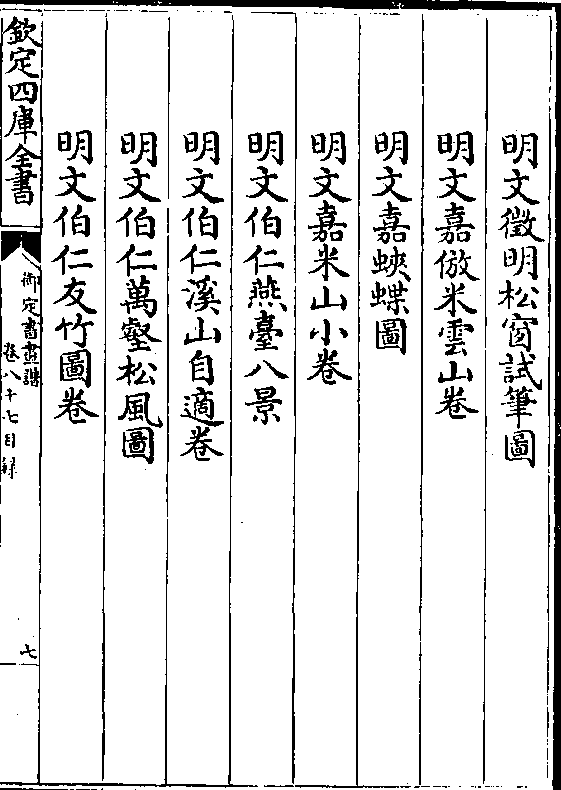 明文徴明松窗試筆圖
明文嘉倣米雲山卷
明文嘉蛺蝶圖
明文嘉米山小卷
明文伯仁燕臺八景
明文伯仁溪山自適卷
明文伯仁萬壑松風圖
明文伯仁友竹圖卷
欽定四庫全書
御定書畫譜
卷八十七目録
七